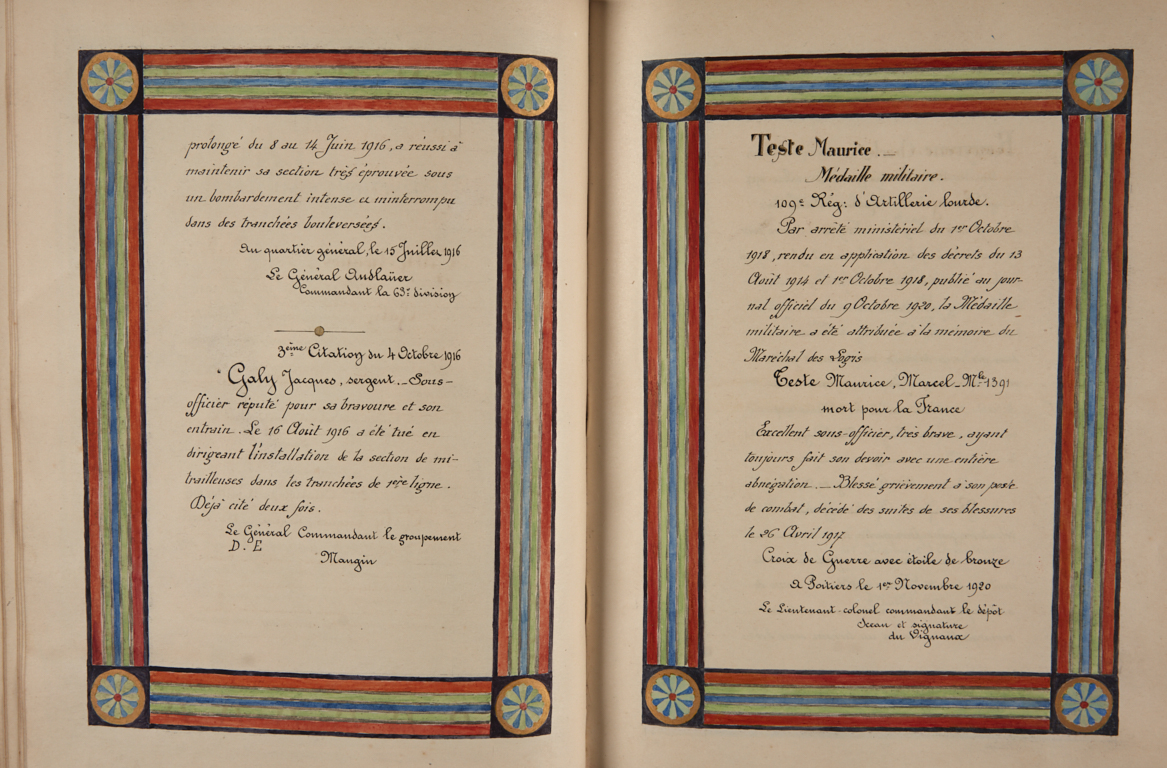 prolongé du 8 au 14 Juin 1916, a réussi à
maintenir sa section très éprouvée sous
un bombardement intense et ininterrompu
dans des tranchées bouleversées.
Au quartier général, le 15 Juillet 1916
Le Général Andlaüer
Commandant la 63e division
3ème Citation du 4 Octobre 1916
Galy Jacques, sergent. _ Sous-
officier réputé pour sa bravoure et son
entrain. Le 16 Août 1916 a été tué en
dirigeant l'installation de la section de mi-
trailleuses dans les tranchées de 1ère ligne.
Déjà cité deux fois.
Le Général Commandant le groupement
D. E
Mangin
Teste Maurice. _
Médaille militaire.
109e Rég: d'Artillerie lourde.
Par arrêté ministériel du 1er Octobre
1918, rendu en application des décrets du 13
Août 1914 et 1er Octobre 1918, publié au jour-
nal officiel du 9 Octobre 1920, la Médaille
militaire a été attribuée à la mémoire du
Maréchal des Logis
Teste Maurice, Marcel _ Mle 1391
mort pour la France
Excellent sous-officier, très brave, ayant
toujours fait son devoir avec une entière
abnégation. _ Blessé grièvement à son poste
de combat, décédé des suites de ses blessures
le 26 Avril 1917
Croix de Guerre avec étoile de bronze
A Poitiers le 1er Novembre 1920
Le Lieutenant-colonel commandant le dépôt
Sceau et signature
du Vignaux